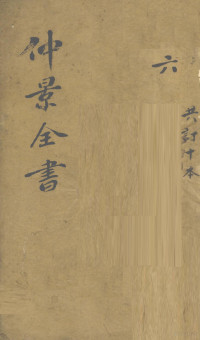 仲景全書
六
共訂十本